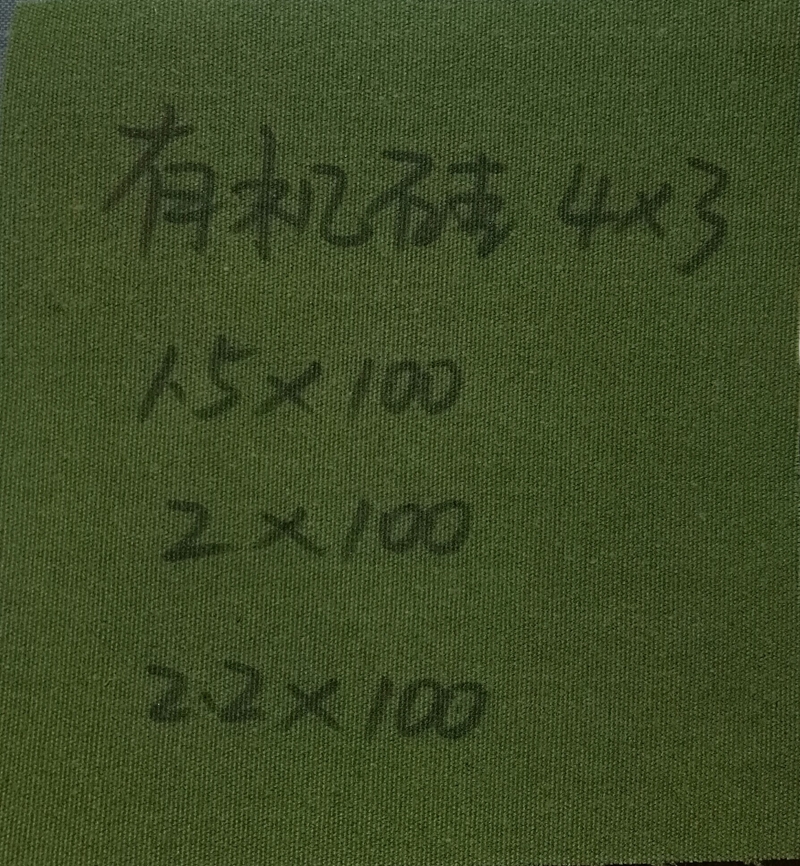 有机硅 4×3
1.5×100
2×100
2.2×100